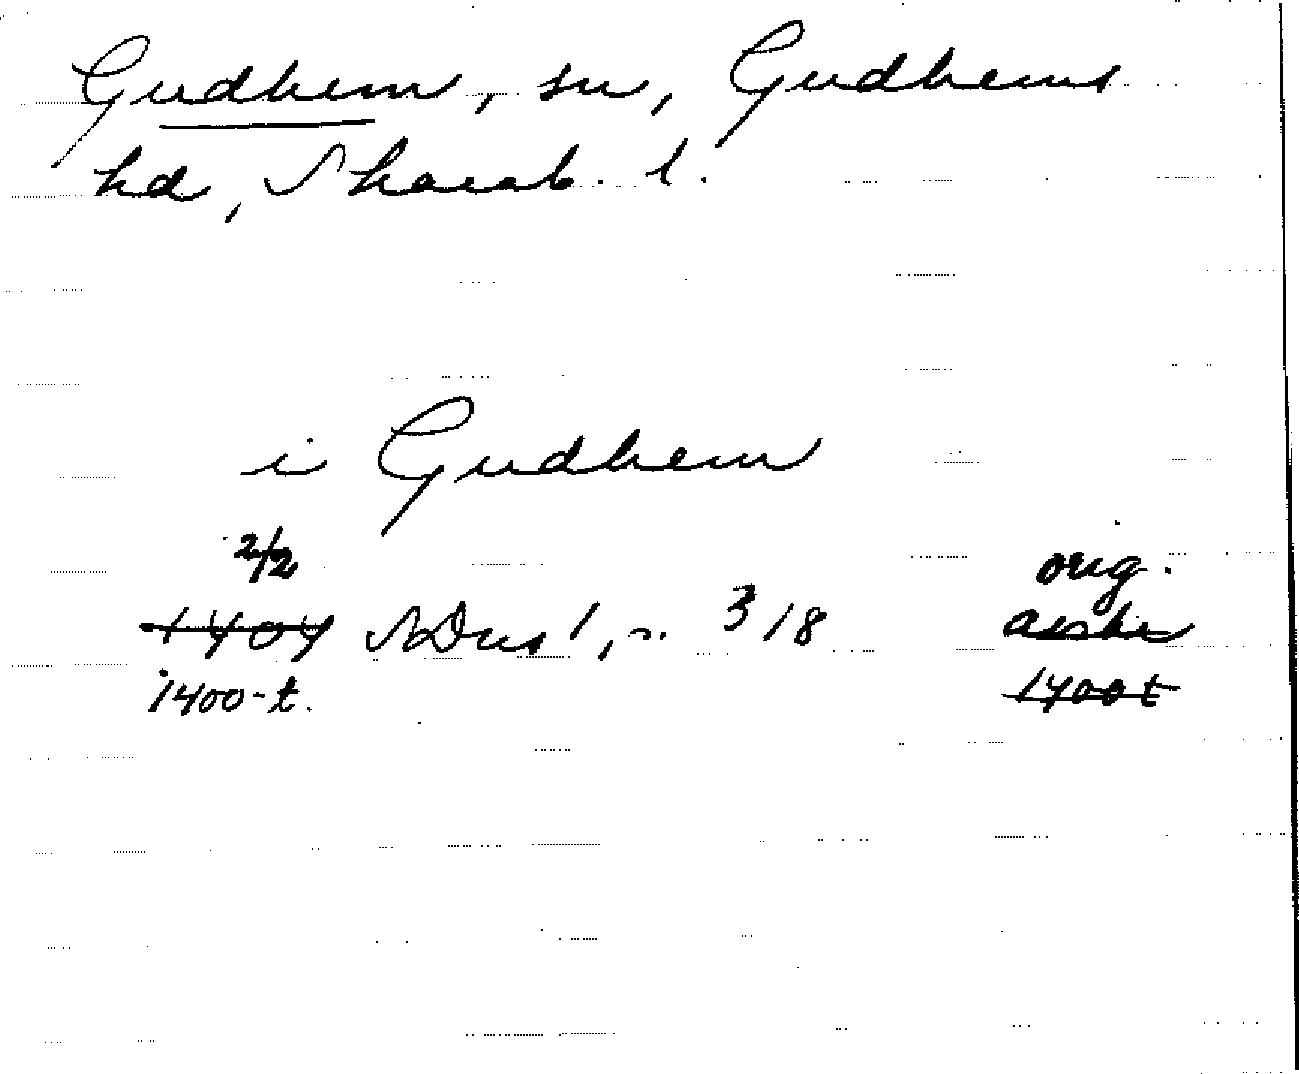 Gudhem, sn, Gudhems
hd, Skarab. l.
i Gudhem
2/2 orig.
1404 SDns 1, s. 318
1400-t. 1400t